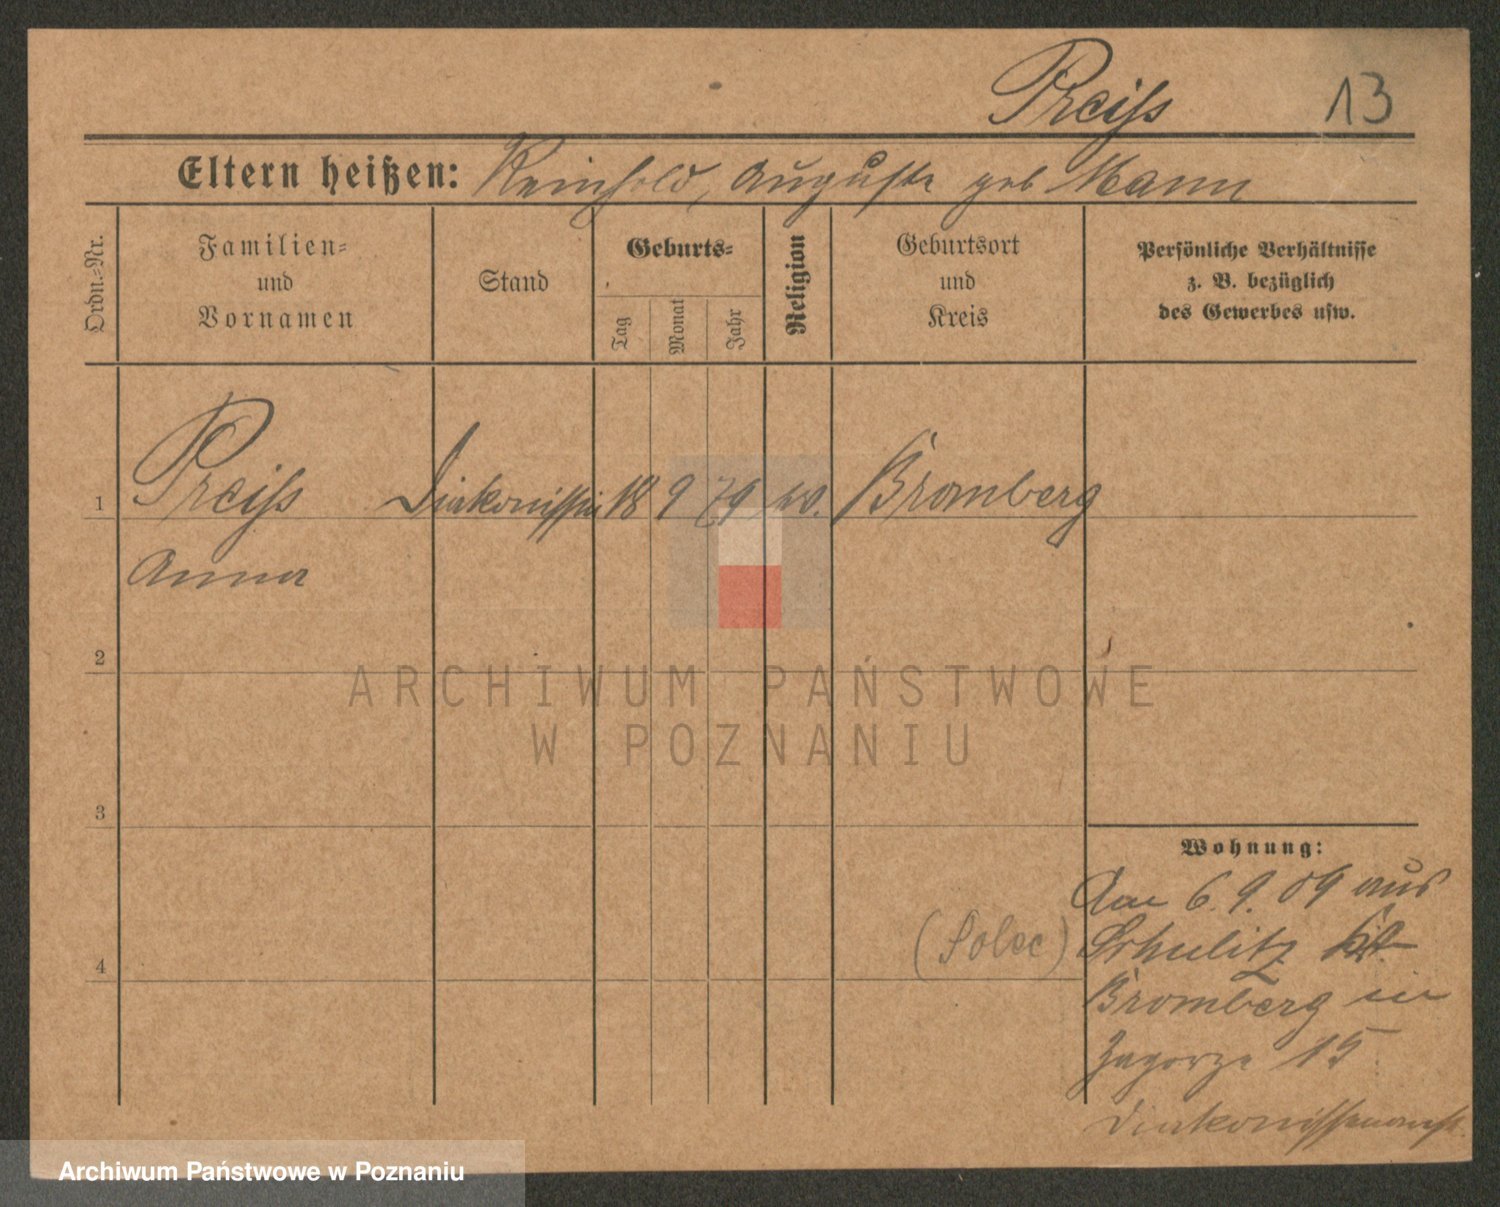 Preiß 13
Eltern heißen: Reinhold, Auguste geb Mann
Ordn.-Nr.
Familien-
und
Vornamen
Stand
Geburts-
Tag
Monat
Jahr
Religion
Geburtsort
und
Kreis
Persönliche Verhältnisse
z. B. bezüglich
des Gewerbes usw.
1 Preiß Diakonissin 18 9 79 ev. Bromberg
Anna
2
ARCHIWUM PAŃSTWOWE
W POZNANIU
3
Wohnung:
Am 6.9.09 aus
(Solec) Schulitz Kr.
4
Bromberg in
Zagorze 15
Diakonissenanst.
Archiwum Państwowe w Poznaniu